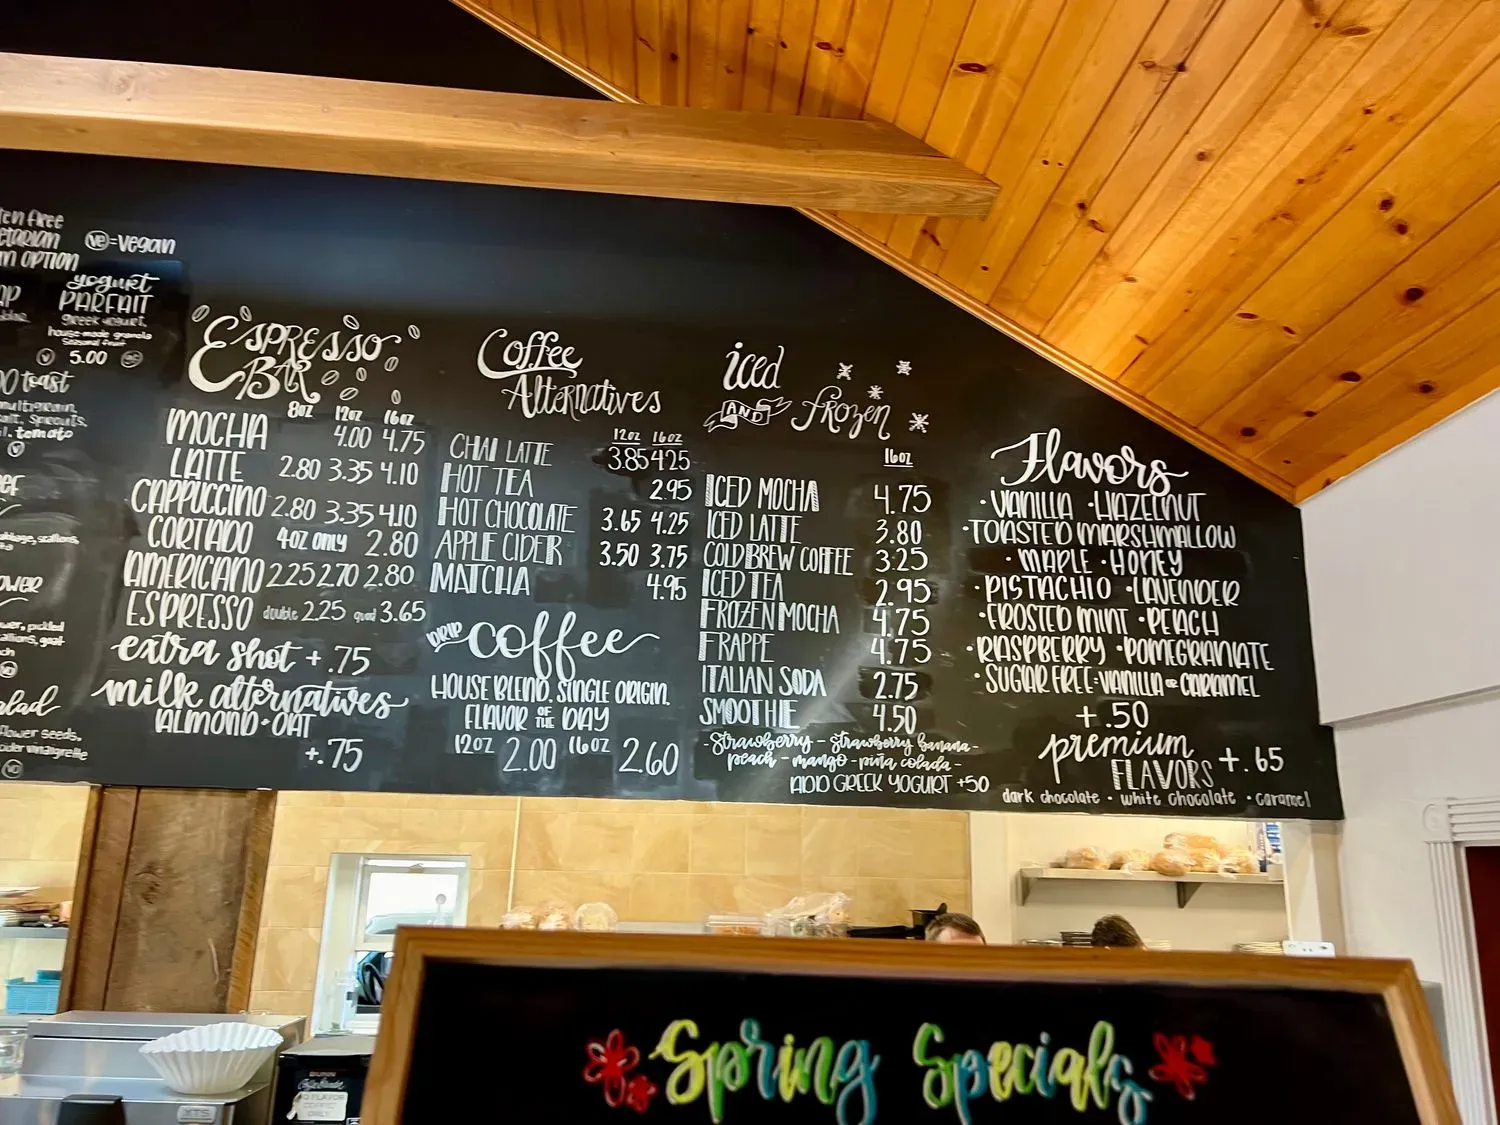 FREE
VE = VEGAN
OPTION
yogurt
PARFAIT
greek yogurt,
house-made granola
seasonal fruit
V 5.00
toast
multigrain
sprouts,
tomato
V
seeds,
ESPRESSO
BAR
8oz 12oz 16oz
MOCHA 4.00 4.75
LATTE 2.80 3.35 4.10
CAPPUCCINO 2.80 3.35 4.10
CORTADO 4oz ONLY 2.80
AMERICANO 2.25 2.70 2.80
ESPRESSO double 2.25 quad 3.65
extra shot +.75
milk alternatives
ALMOND - OAT
+.75
Coffee
Alternatives
12oz 16oz
CHAI LATTE 3.85 4.25
HOT TEA 2.95
HOT CHOCOLATE 3.65 4.25
APPLE CIDER 3.50 3.75
MATCHA 4.95
DRIP coffee
HOUSE BLEND, SINGLE ORIGIN,
FLAVOR OF THE DAY
12oz 2.00 16oz 2.60
iced
AND frozen
16oz
ICED MOCHA 4.75
ICED LATTE 3.80
COLD BREW COFFEE 3.25
ICED TEA 2.95
FROZEN MOCHA 4.75
FRAPPE 4.75
ITALIAN SODA 2.75
SMOOTHIE 4.50
-strawberry - strawberry banana-
peach - mango - piña colada-
ADD GREEK YOGURT +50
Flavors
· VANILLA · HAZELNUT
· TOASTED MARSHMALLOW
· MAPLE · HONEY
· PISTACHIO · LAVENDER
· FROSTED MINT · PEACH
· RASPBERRY · POMEGRANATE
· SUGAR FREE: VANILLA or CARAMEL
+.50
premium
FLAVORS +.65
dark chocolate · white chocolate · caramel
BUNN
Spring Specials